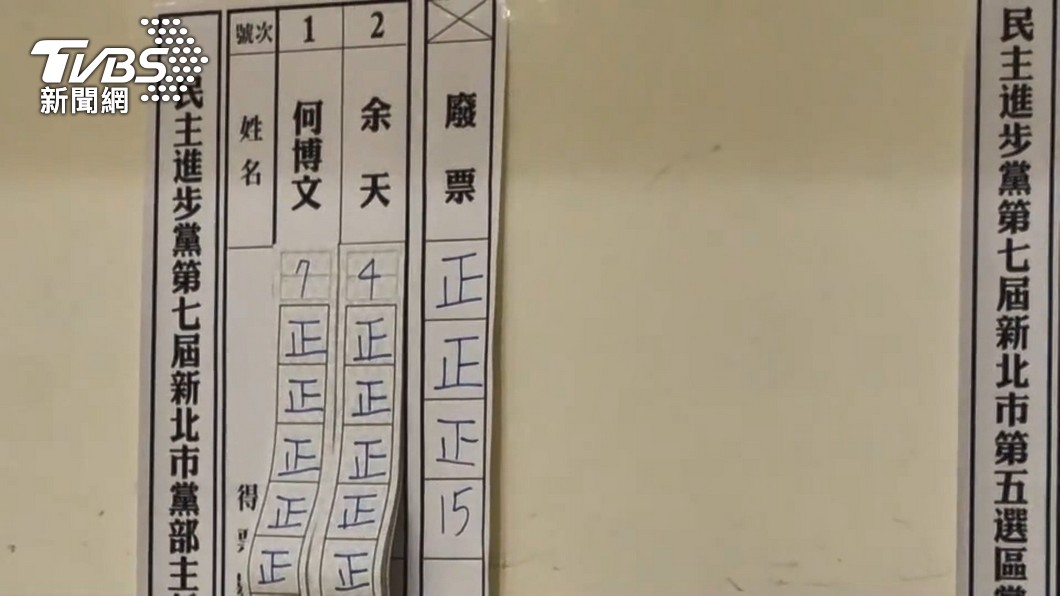 TVBS
新聞網
民主進步黨第七屆新北市黨部主
號次 1 2
姓名 何博文 余天 廢票
得票
7 4 正
正 正 正
正 正 正
正 正 15
正 正
正 正
民主進步黨第七屆新北市第五選區黨